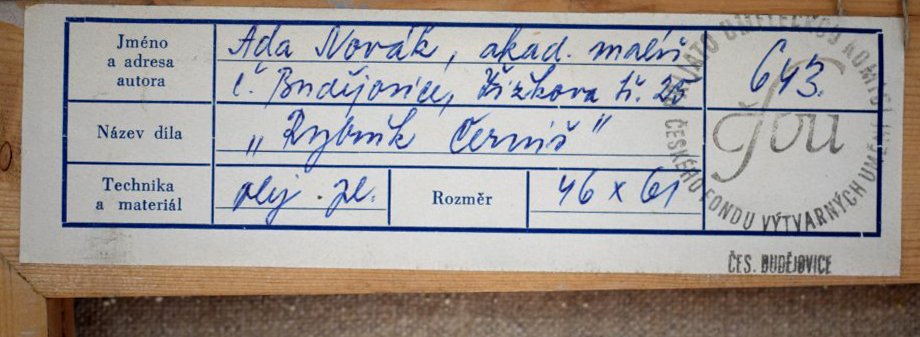 Jméno
a adresa
autora
Ada Novák, akad. malíř
Č. Budějovice, Žižkova tř. 25
643.
Název díla
„Rybník Černiš“
Technika
a materiál
olej. pl.
Rozměr
46 x 61
UMĚLECKOU KOMISÍ
ČESKÉHO FONDU VÝTVARNÝCH UMĚNÍ
ČFVU
ČES. BUDĚJOVICE